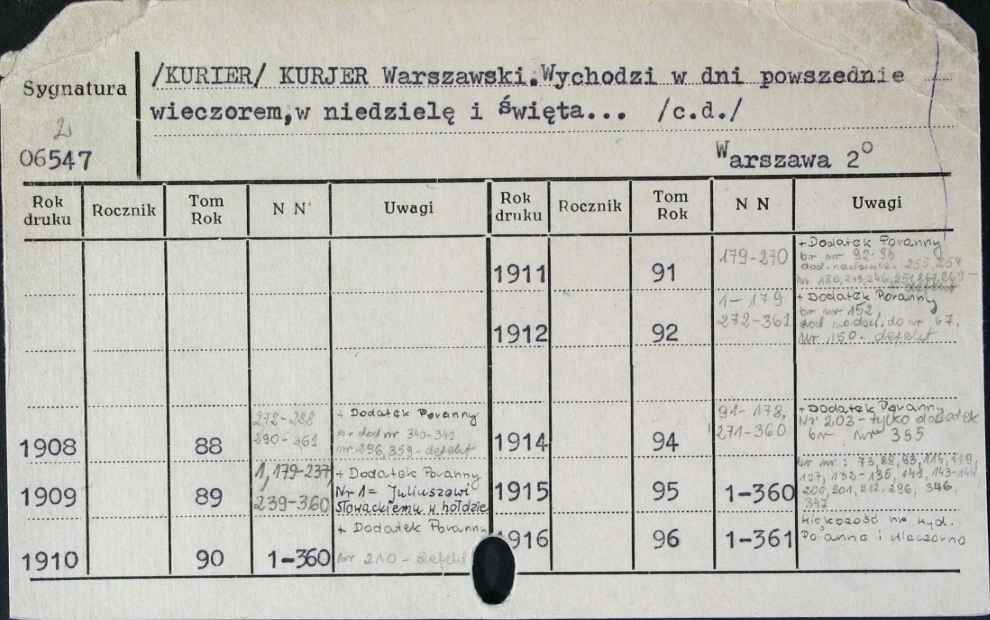 Sygnatura
2
06547
/KURIER/ KURJER Warszawski.Wychodzi w dni powszednie
wieczorem,w niedzielę i święta... /c.d./
Warszawa 2°
Rok druku Rocznik Tom Rok N N Uwagi Rok druku Rocznik Tom Rok N N Uwagi
1911 91 179-270 + Dodatek Poranny
br nr 92-95
1912 92 1-179
272-361 + Dodatek Poranny
br nr 152,
do nr 67,
Nr 150 - defekt
1908 88 272-288
290-361 + Dodatek Poranny
nr 340-341
nr 196, 359 - defekt
1914 94 91-178,
271-360 + Dodatek Poranny
Nr 203 - tylko dodatek
br nr 355
1909 89 1,179-237,
239-360 + Dodatek Poranny
Nr 1 = Juliuszowi
Słowackiemu w hołdzie
1915 95 1-360 br nr: 73, 82, 93,
346,
1910 90 1-360 + Dodatek Poranny
nr 210 - defekt
1916 96 1-361 większość nr wyd.
Poranna i wieczorna